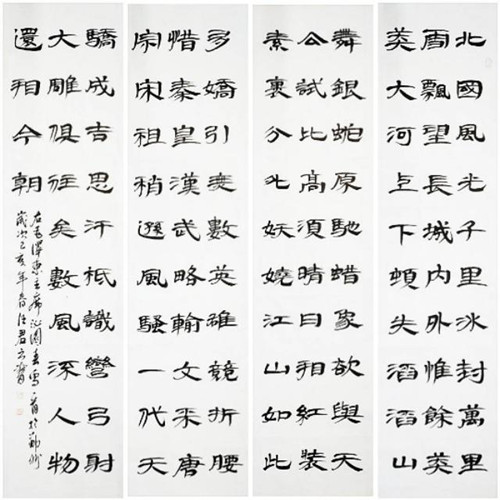 北國風光千里冰封萬里
雪飄望長城內外惟餘莽
莽大河上下頓失滔滔山
舞銀蛇原馳蜡象欲與天
公試比高須晴日看紅裝
素裹分外妖嬈江山如此
多嬌引無數英雄競折腰
惜秦皇漢武略輸文采唐
宗宋祖稍遜風騷一代天
驕成吉思汗祇識彎弓射
大雕俱往矣數風流人物
還看今朝
右毛澤東主席沁園春雪一首於
歲次己亥年春